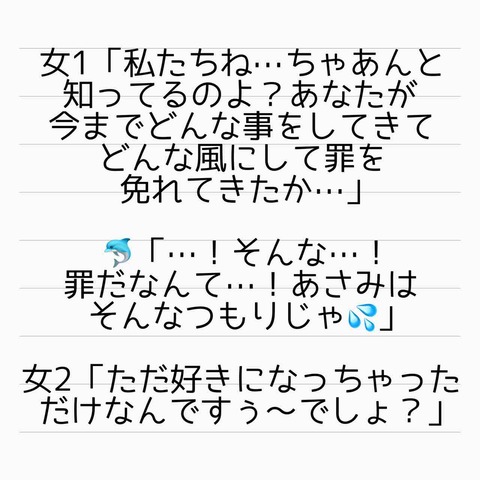 女1「私たちね…ちゃあんと
知ってるのよ？あなたが
今までどんな事をしてきて
どんな風にして罪を
免れてきたか…」
🐬「…！そんな…！
罪だなんて…！あさみは
そんなつもりじゃ💦」
女2「ただ好きになっちゃった
だけなんですぅ〜でしょ？」